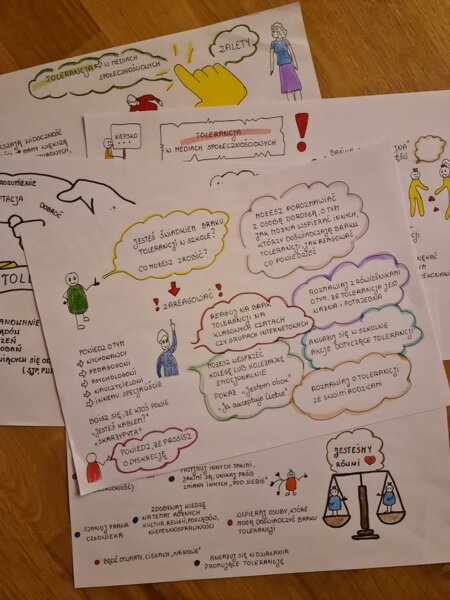 TOLERANCJA W MEDIACH
SPOŁECZNOŚCIOWYCH
ZALETY
KIEPSKO
TOLERANCJA
W MEDIACH SPOŁECZNOŚCIOWYCH
ROZUMIENIE
DOBROĆ
JESTEŚ ŚWIADKIEM BRAKU
TOLERANCJI W SZKOLE?
CO MOŻESZ ZROBIĆ?
ZAREAGOWAĆ!
MOŻESZ POROZMAWIAĆ
Z OSOBĄ DOROSŁĄ, O TYM
JAK MOŻNA WSPIERAĆ INNYCH,
KTÓRZY DOŚWIADCZAJĄ BRAKU
TOLERANCJI, JAK REAGOWAĆ,
CO POWIEDZIEĆ
ROZMAWIAJ Z RÓWIEŚNIKAMI
O TYM, ŻE TOLERANCJA JEST
WAŻNA I POTRZEBNA
REAGUJ NA BRAK
TOLERANCJI NA
KLASOWYCH CZATACH
CZY GRUPACH INTERNETOWYCH
ANGAŻUJ SIĘ W SZKOLNE
AKCJE DOTYCZĄCE TOLERANCJI
MOŻESZ WESPRZEĆ
KOLEGĘ LUB KOLEŻANKĘ
EMOCJONALNIE
POKAŻ "Jestem obok"
"Ja akceptuję Ciebie"
ROZMAWIAJ O TOLERANCJI
ZE SWOIMI RODZICAMI
POWIEDZ O TYM
WYCHOWAWCY
PEDAGOGOWI
PSYCHOLOGOWI
NAUCZYCIELOWI
INNEMU SPECJALIŚCIE
BOISZ SIĘ, ŻE KTOŚ POWIE
"JESTEŚ KABLEM!"
"SKARŻYPYTA"
POWIEDZ, ŻE PROSISZ
O DYSKRECJĘ
JESTEŚMY
RÓWNI
TRAKTUJ INNYCH TAKIMI,
JAKIMI SĄ, UNIKAJ PRÓB
ZMIANY INNYCH "POD SIEBIE"
SZANUJ PRAWA
CZŁOWIEKA
ZDOBYWAJ WIEDZĘ
NA TEMAT RÓŻNYCH
KULTUR, RELIGII, POGLĄDÓW,
NIEPEŁNOSPRAWNOŚCI
WSPIERAJ OSOBY, KTÓRE
MOGĄ DOŚWIADCZAĆ BRAKU
TOLERANCJI
BĄDŹ OTWARTY, CIEKAWY "NA NOWE"
ANGAŻUJ SIĘ W DZIAŁANIA
PROMUJĄCE TOLERANCJĘ